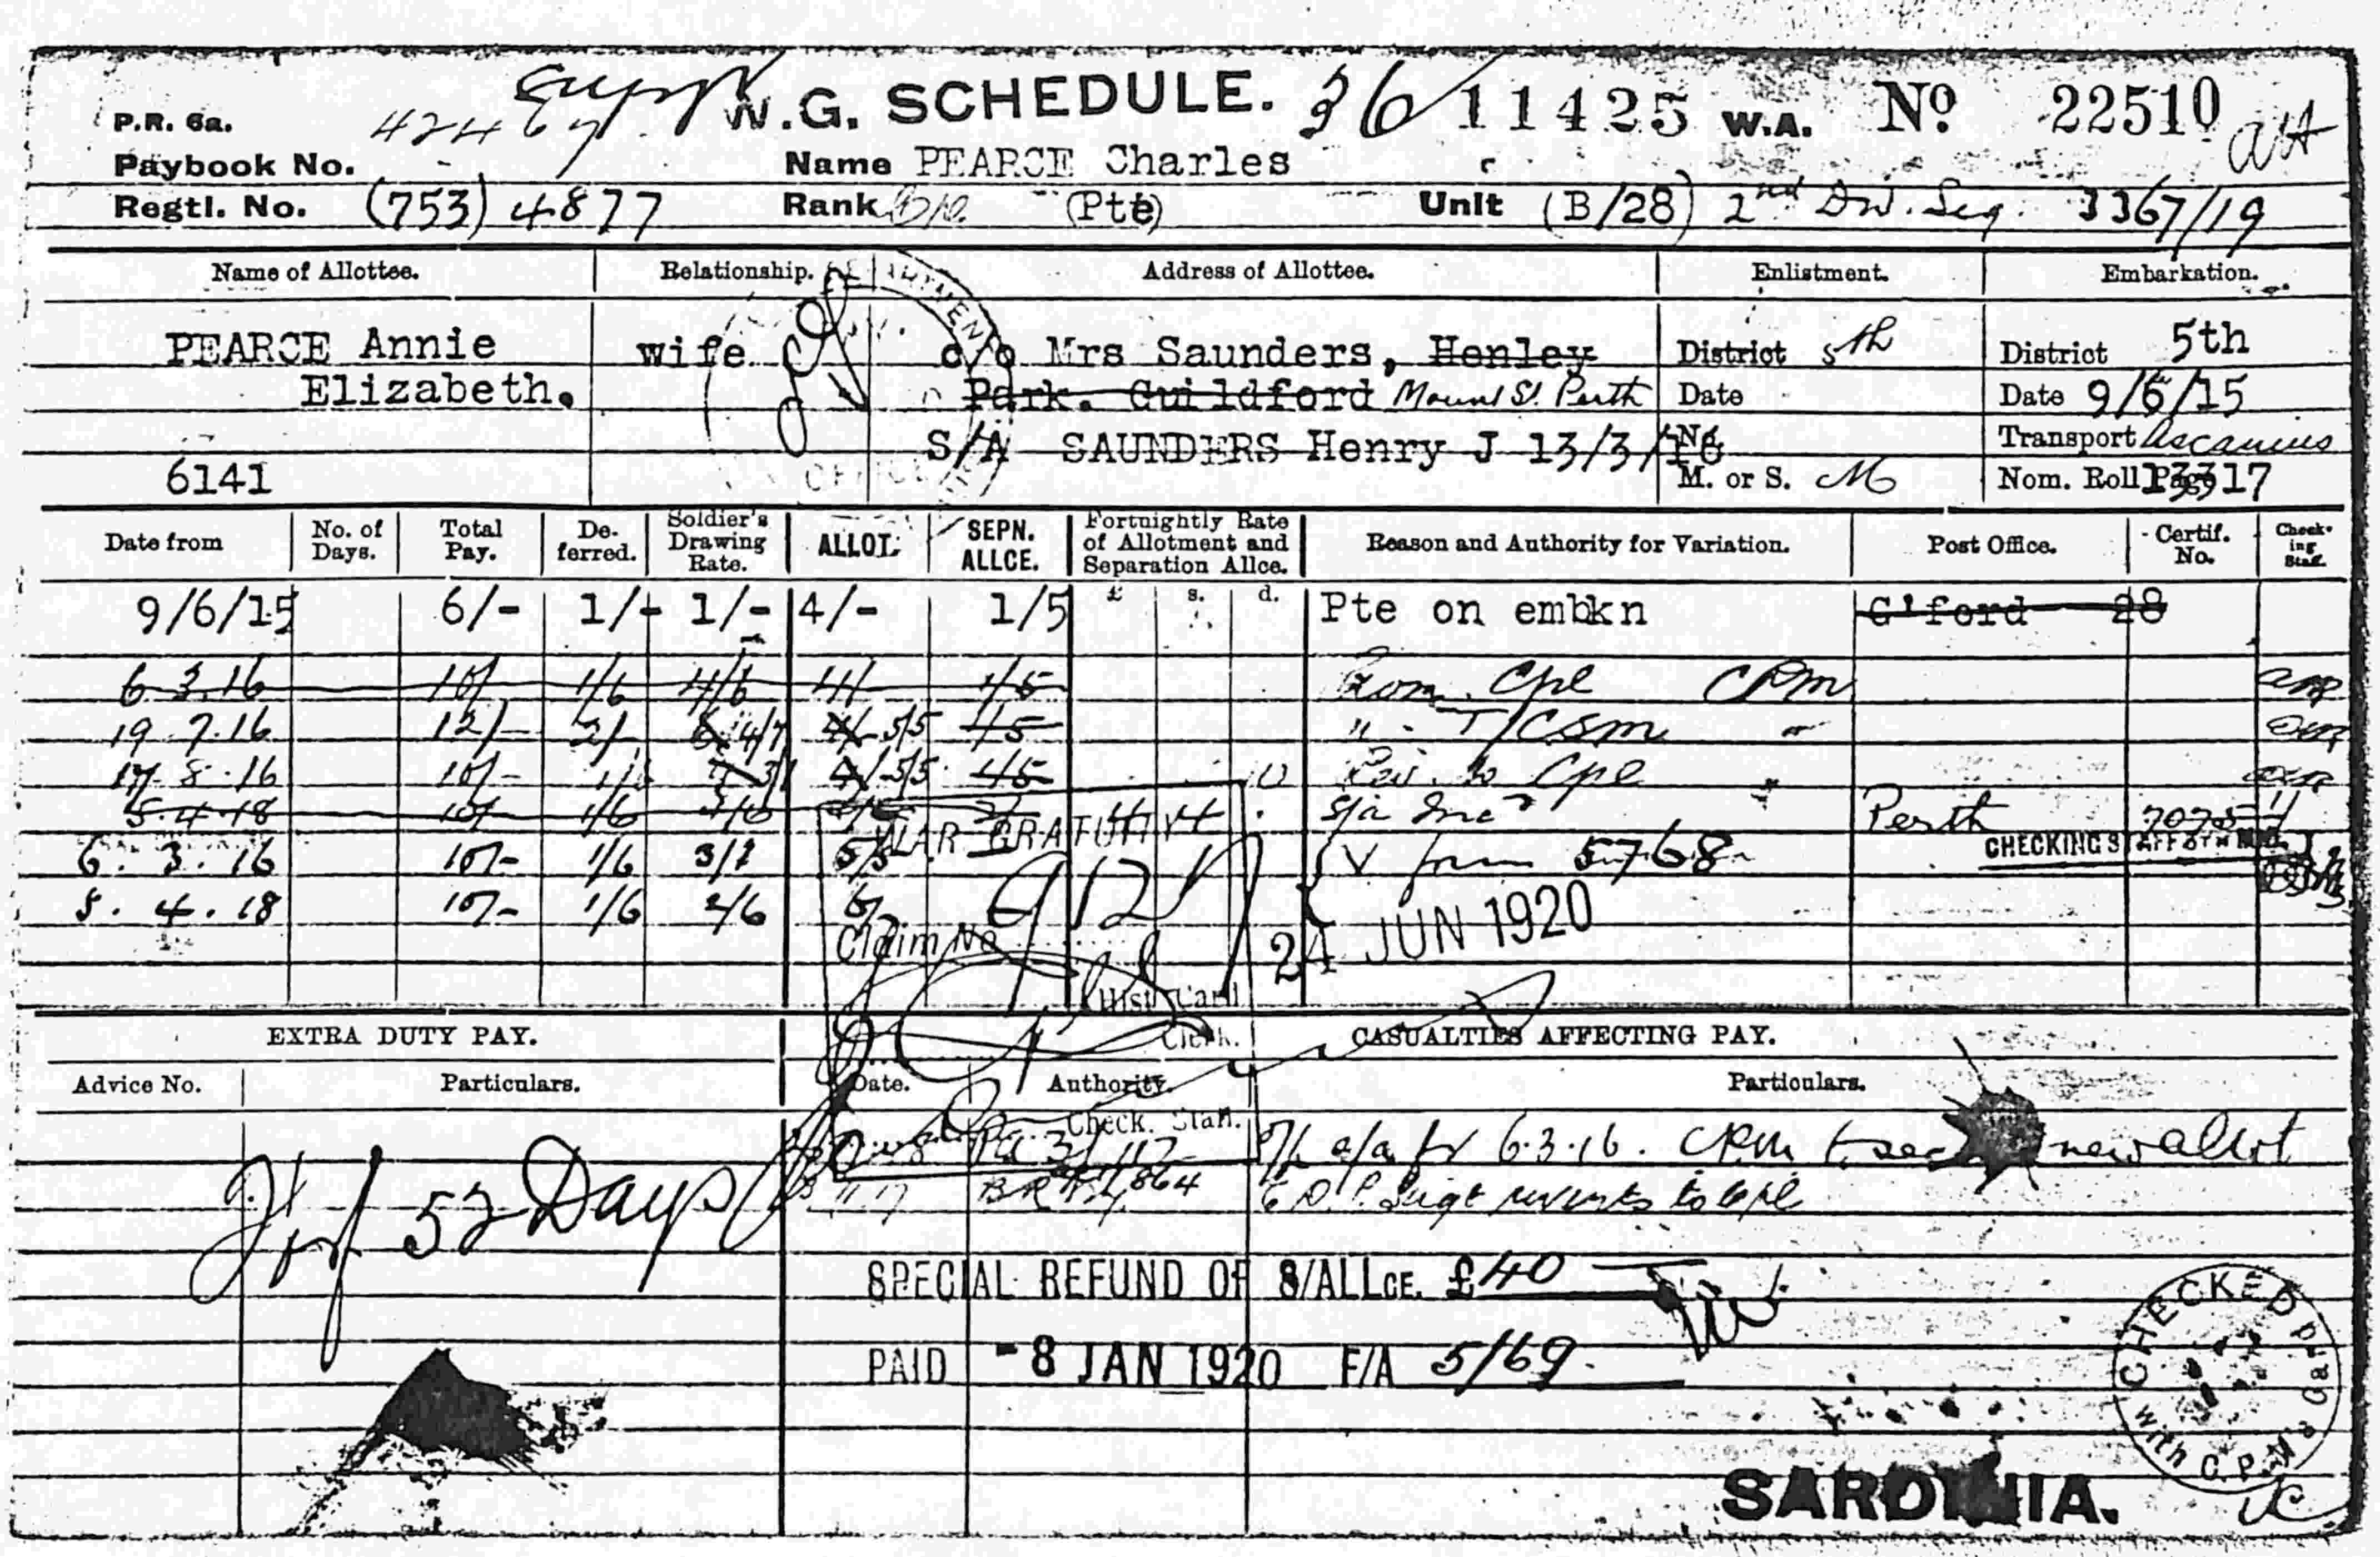 W.G. SCHEDULE. 36 11425 W.A. Nº 22510
P.R. 6a.
Paybook No. Name PEARCE Charles
Regtl. No. (753) 4877 Rank (Pte) Unit (B/28) 2nd Div. Sig. 3367/19
Name of Allottee. Relationship. Address of Allottee. Enlistment. Embarkation.
PEARCE Annie wife c/o Mrs Saunders, Henley District 5th District 5th
Elizabeth. Park. Guildford Mount St. Perth Date Date 9/6/15
S/A SAUNDERS Henry J 13/3/16 No. Transport Ascanius
6141 M. or S. M Nom. Roll Page 17
Date from No. of Days. Total Pay. Deferred. Soldier's Drawing Rate. ALLOT. SEPN. ALLCE. Fortnightly Rate of Allotment and Separation Allce. Reason and Authority for Variation. Post Office. Certif. No. Checking Staff.
£ s. d.
9/6/15 6/- 1/- 1/- 4/- 1/5 Pte on embkn G'ford 28
6 3.16 10/- 1/6 4/6 4/ 1/5 Prom. Cpl CPM
19 7.16 12/- 2/ 4/7 4/ 5/5 1/5 " T/CSM "
17 8.16 10/- 1/6 4/ 5/5 1/5 Rev. to Cpl "
5.4.18 10/- 1/6 2/ S/a Incd Perth
WAR GRATUITY
6.3.16 10/- 1/6 3/1 5/5 V from 5768 CHECKING STAFF 5TH M.D.
5.4.18 10/- 1/6 2/6 6/
Claim No 24 JUN 1920
Hist. Card
Clerk.
EXTRA DUTY PAY. CASUALTIES AFFECTING PAY.
Advice No. Particulars. Date. Authority. Particulars.
Check. Staff.
a/a fr 6.3.16. CPM new allot
52 Days
11.17 864 E.D.P. Sergt reverts to Cpl
SPECIAL REFUND OF S/ALLCE. £40
PAID -8 JAN 1920 F/A 5/69
CHECKED with C.P.M's Card
SARDINIA.